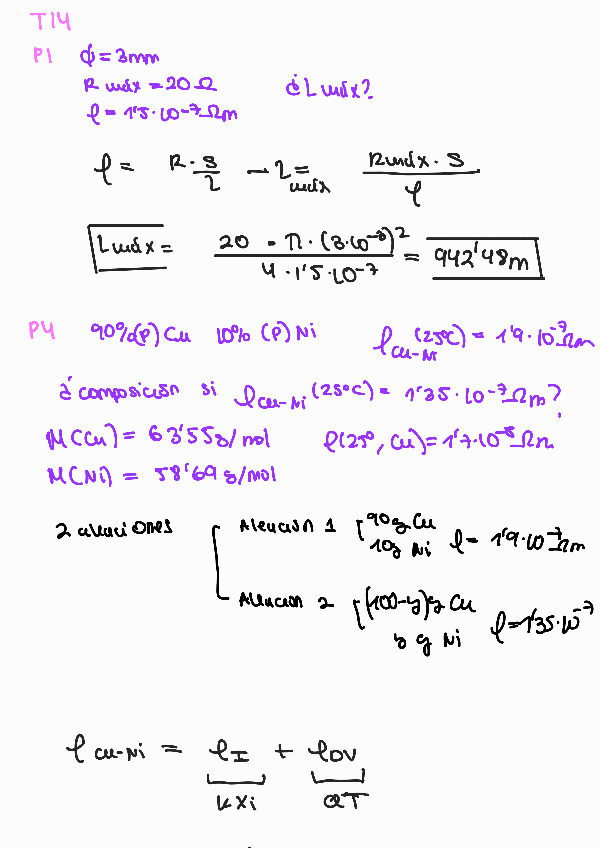 T14
P1 ϕ = 3mm
R máx = 20 Ω ¿L máx?
ρ = 1'5·10⁻⁷ Ωm
ρ = R · S/L → Lmáx = Rmáx · S / ρ
Lmáx = 20 · π · (3·10⁻³)² / 4 · 1'5·10⁻⁷ = 942'48m
P4 90%(P) Cu 10% (P) Ni ρcu-Ni (25ºC) = 1'9·10⁻⁷ Ωm
¿composición si ρcu-Ni (25ºC) = 1'35·10⁻⁷ Ωm?
M(Cu) = 63'55g/mol ρ(25º, Cu) = 1'7·10⁻⁸ Ωm
M(Ni) = 58'69 g/mol
2 aleaciones
Aleación 1 90g Cu
10g Ni ρ = 1'9·10⁻⁷ Ωm
Aleación 2 (100-y)g Cu
y g Ni ρ = 1'35·10⁻⁷
ρ cu-Ni = ρI + ρDV
KXi aT